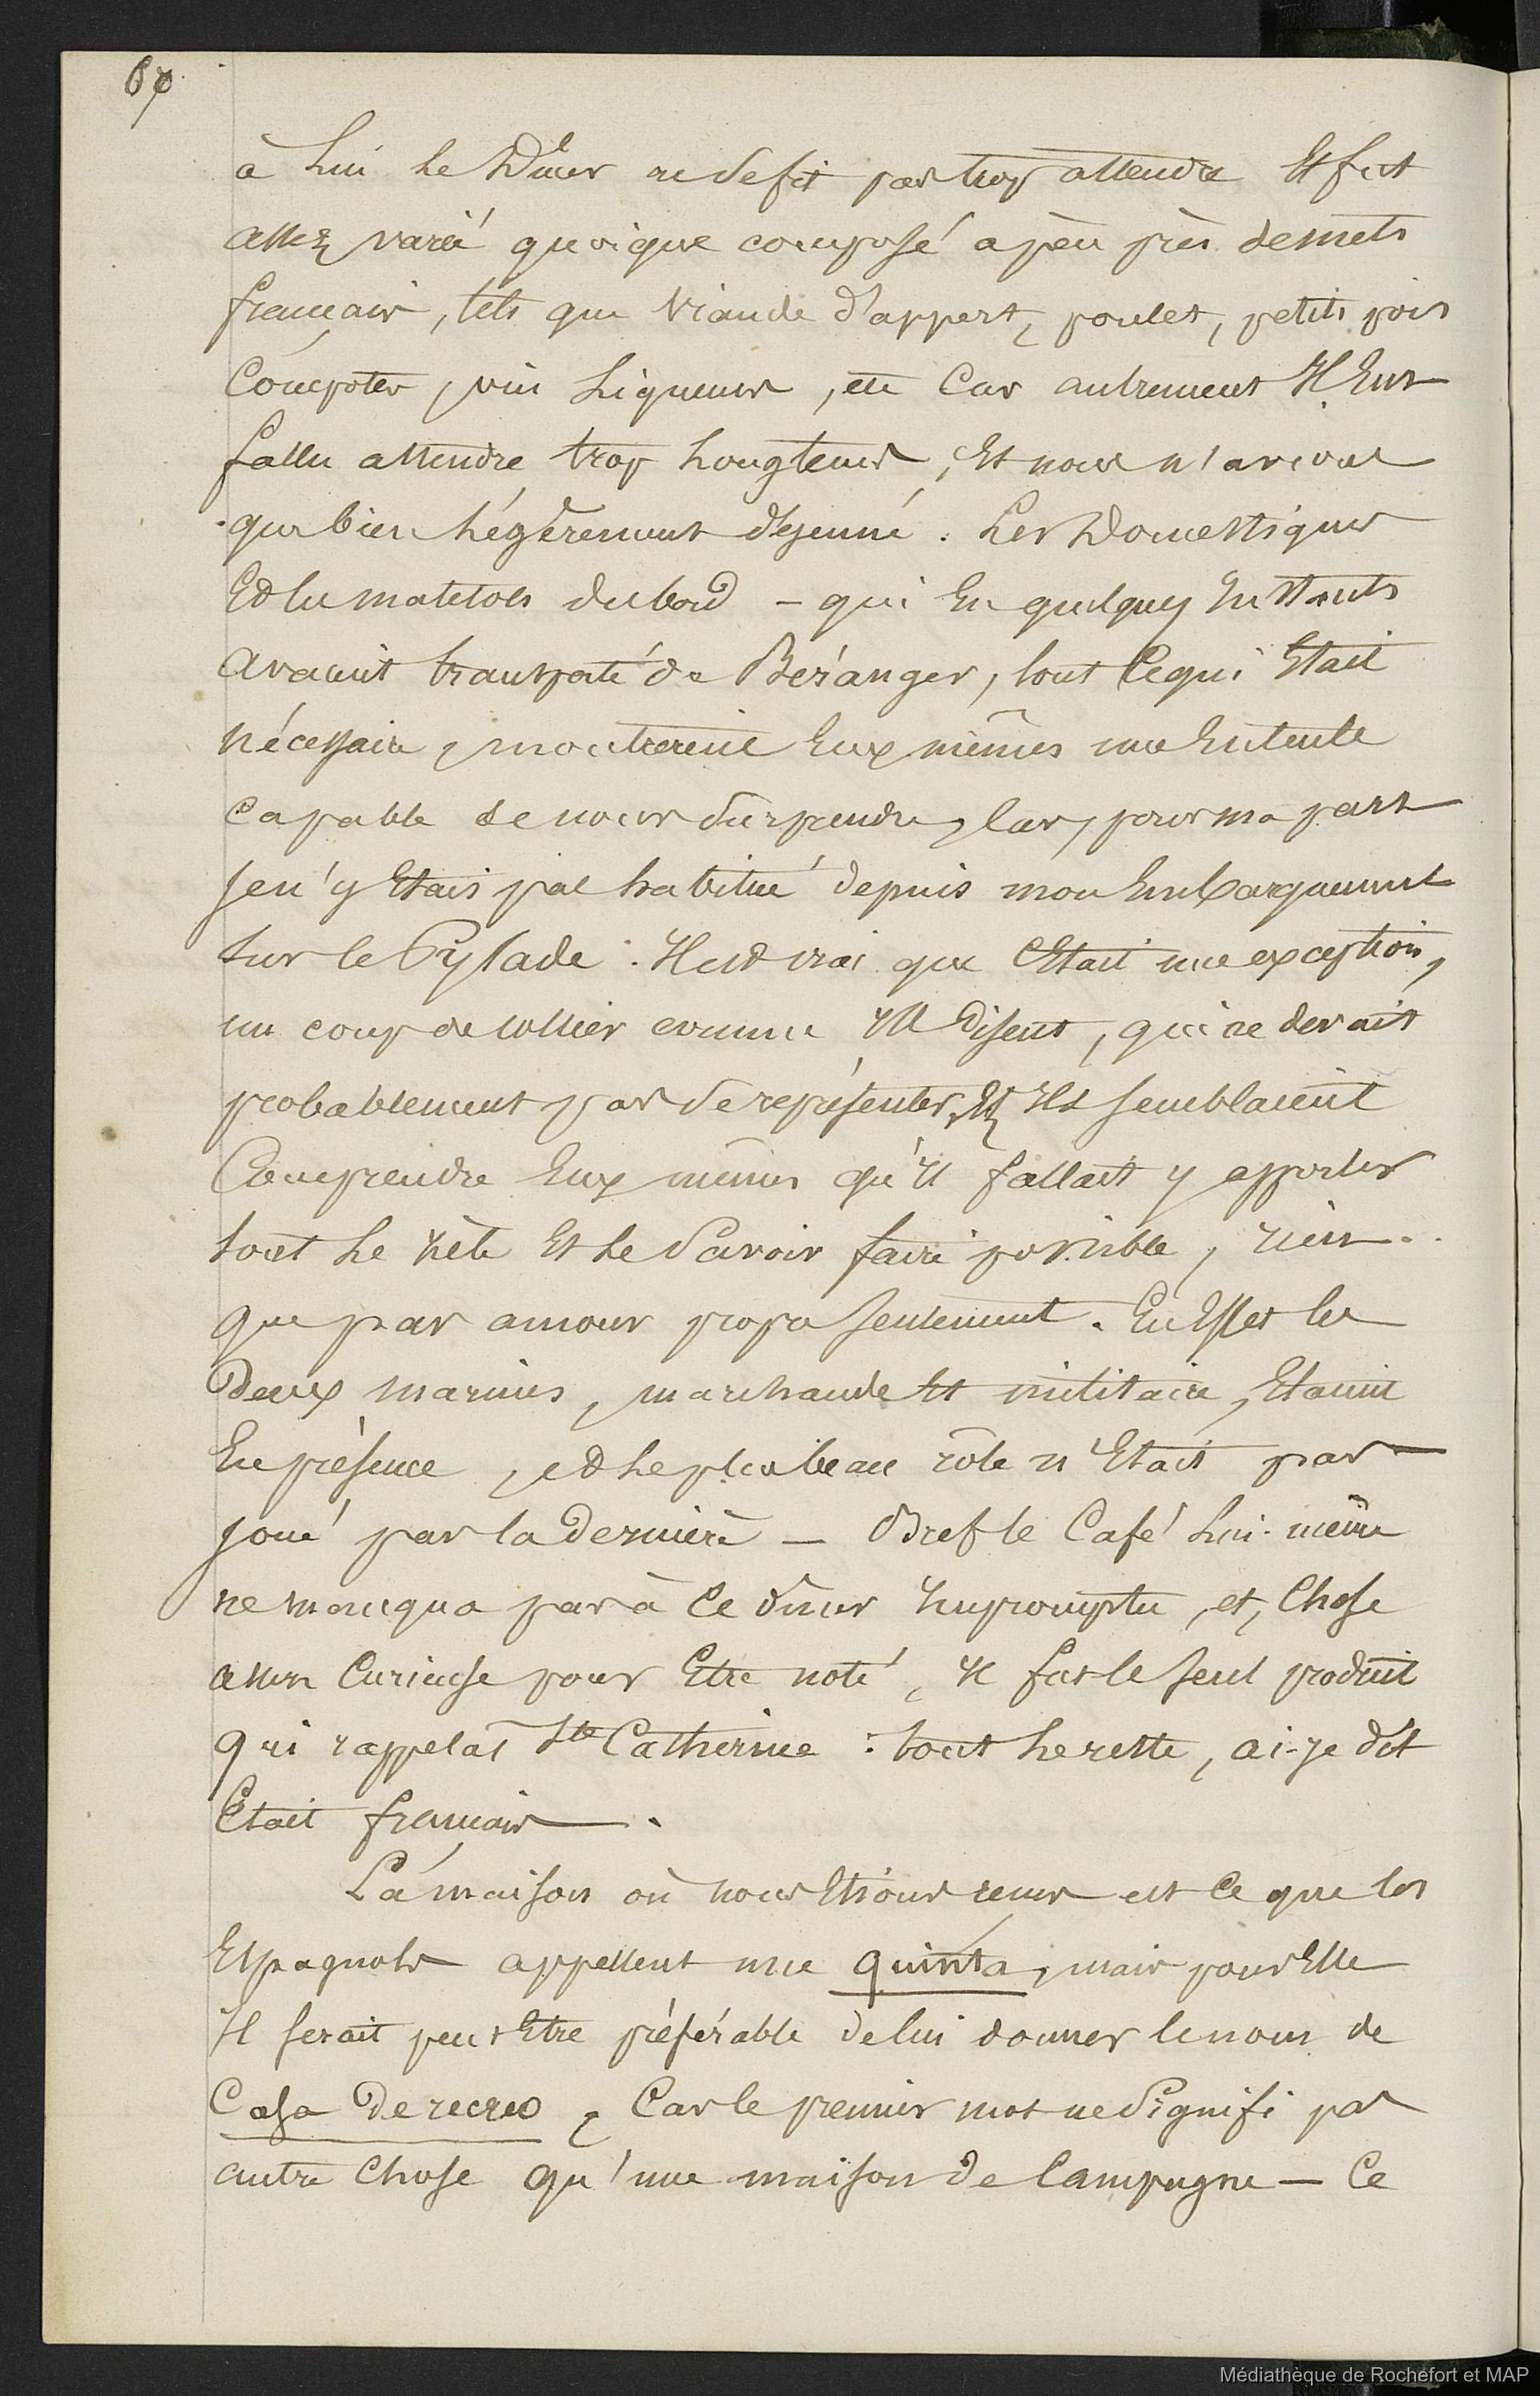 à Lui Le Dîner ne se fit pas trop attendre Et fut
assez varié quoique composé a peu près de mets
français, tels que Viande d'appert, poulet, petits pois
Compotes, vin Liqueurs, etc Car autrement Il Eut
fallu attendre trop Longtems, Et nous n'avions
que bien Légèrement dejeuné. Les Domestiques
Et les matelots du bord - qui En quelques Instants
avaient transporté du Béranger, tout Ce qui Etait
nécessaire, montrerent Eux mêmes une Entente
capable de nous surprendre, Car, pour ma part
Je n'y Etais pas habitué depuis mon Embarquement
sur le Pylade. Il est vrai que C'Etait une exception,
un coup de collier comme Ils Disent, qui ne devait
probablement pas se représenter, Et Ils semblaient
Comprendre Eux mêmes qu'Il fallait y apporter
tout Le zèle Et Le Savoir faire possible, rien
que par amour propre seulement. En Effet les
Deux marines, marchande Et militaire, Etaient
En présence, et Le plus beau rôle n'Etait pas
Joué par la Dernière - Bref le Café Lui-même
ne manqua pas à Ce dîner Impromptu, et, Chose
assez Curieuse pour Etre noté, Il fut le seul produit
qui rappelat Ste Catherine : tout Le reste, ai-je dit
Etait français.
La maison où nous Etions venus est Ce que les
Espagnols appellent une quinta, mais pour Elle
Il serait peut Etre préférable de lui donner le nom de
Casa De recreo, Car le premier mot ne Signifi pas
autre Chose qu'une maison de Campagne - Ce
Médiathèque de Rochefort et MAP